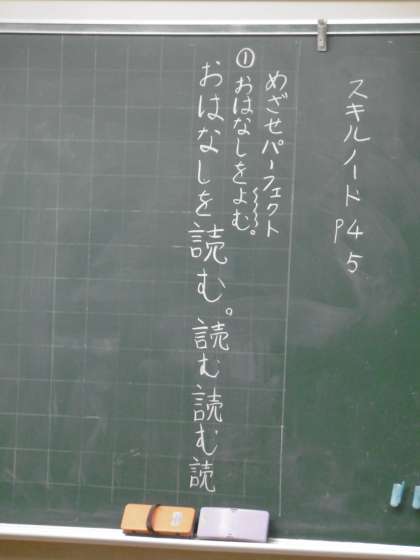 スキルノート P45
めざせパーフェクト
①おはなしをよむ。
おはなしを読む。読む読む読